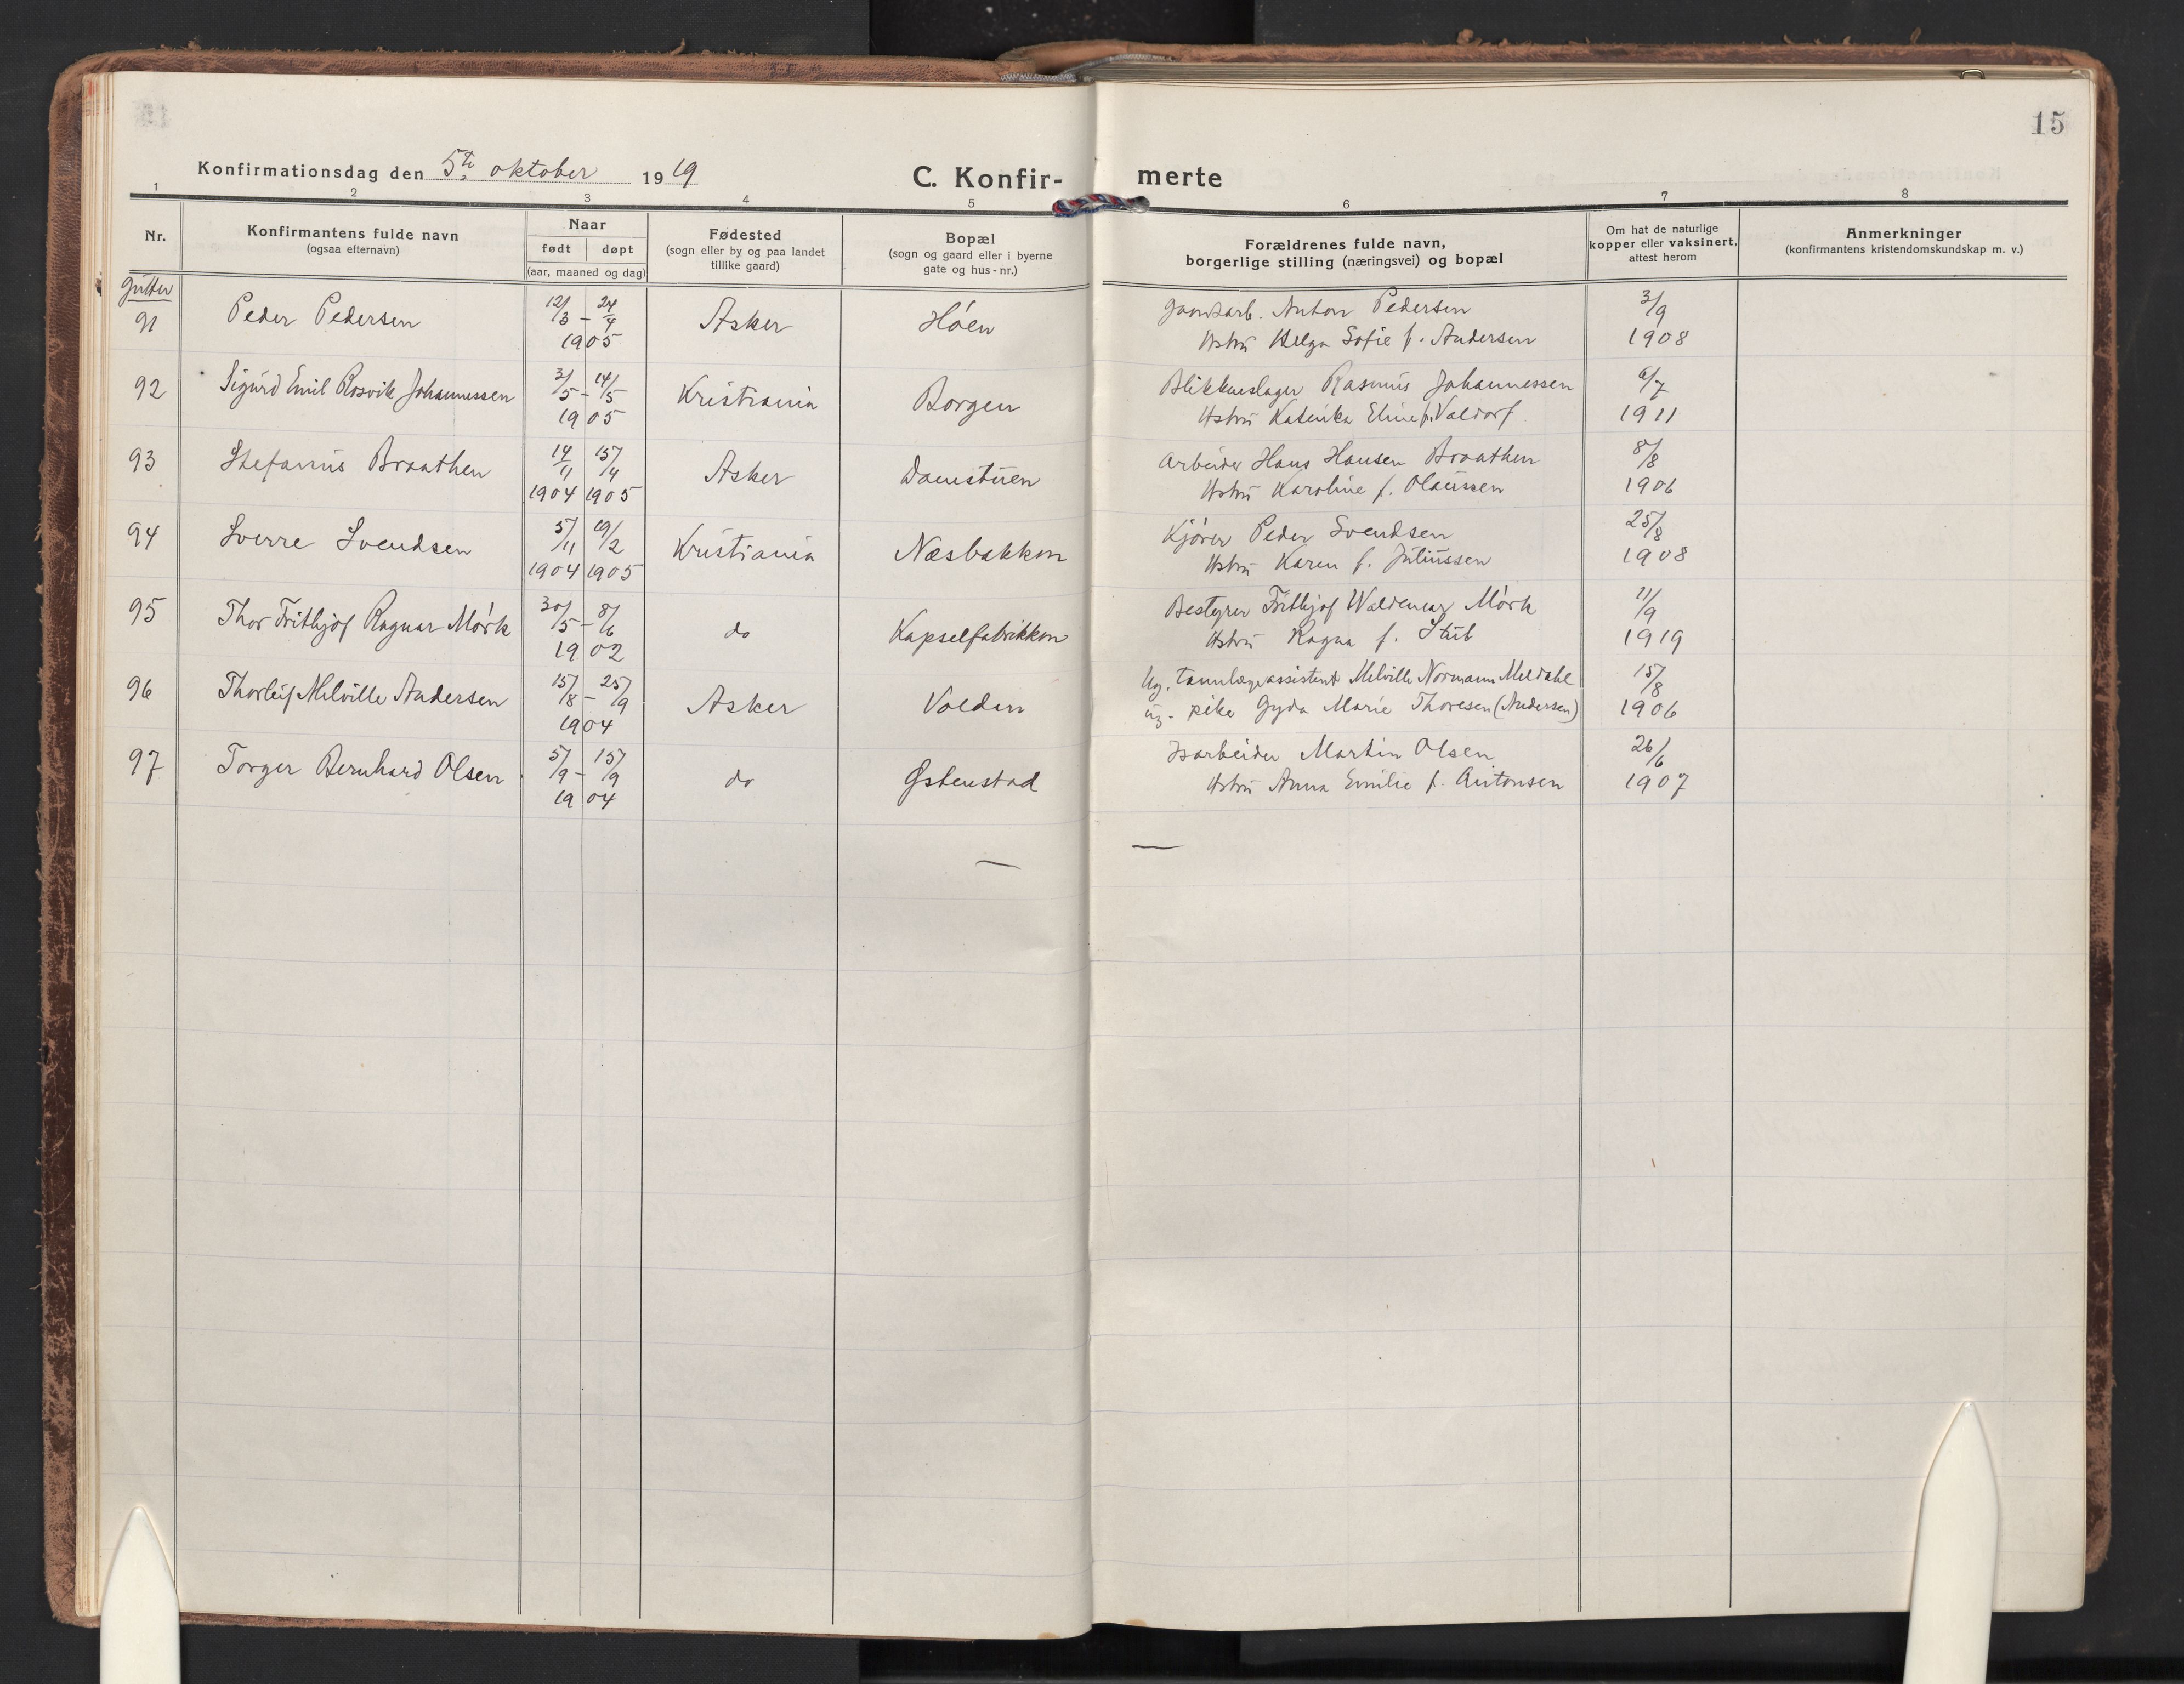 15
Konfirmationsdag den 5te oktober 1919
C. Konfir-
merte
1 2 3 4 5 6 7 8
Nr.
Konfirmantens fulde navn
(ogsaa efternavn)
Naar
født døpt
(aar, maaned og dag)
Fødested
(sogn eller by og paa landet
tillike gaard)
Bopæl
(sogn og gaard eller i byerne
gate og hus-nr.)
Forældrenes fulde navn,
borgerlige stilling (næringsvei) og bopæl
Om hat de naturlige
kopper eller vaksinert,
attest herom
Anmerkninger
(konfirmantens kristendomskundskap m. v.)
Gutter
91 Peder Pedersen 12/3 – 24/4 Asker Høen Gaardsarb. Anton Pedersen 3/9
1905 Hstru Helga Sofie f. Andersen 1908
92 Sigurd Emil Rosvik Johannessen 3/5 – 14/5 Kristiania Borgen Blikkenslager Rasmus Johannessen 6/7
1905 Hstru Katinka Eline f. Valdorf 1911
93 Stefanus Braathen 14/11 15/4 Asker Damstuen Arbeider Hans Hansen Braathen 8/8
1904 1905 Hstru Karoline f. Olaussen 1906
94 Sverre Svendsen 5/11 19/2 Kristiania Næsbakken Kjører Peder Svendsen 25/8
1904 1905 Hstru Karen f. Juliussen 1908
95 Thor Frithjof Ragnar Mørk 30/5 – 8/6 do Kapselfabrikken Bestyrer Frithjof Waldemar Mørk 11/9
1902 Hstru Ragna f. Stub 1919
96 Thorleif Melville Andersen 15/8 – 25/9 Asker Volden Ug. tannlægeassistent Melville Normann Meldahl 15/8
1904 ug. pike Gyda Marie Thoresen (Andersen) 1906
97 Torger Bernhard Olsen 5/9 – 15/9 do Østenstad Isarbeider Martin Olsen 26/6
1904 Hstru Anna Emilie f. Antonsen 1907